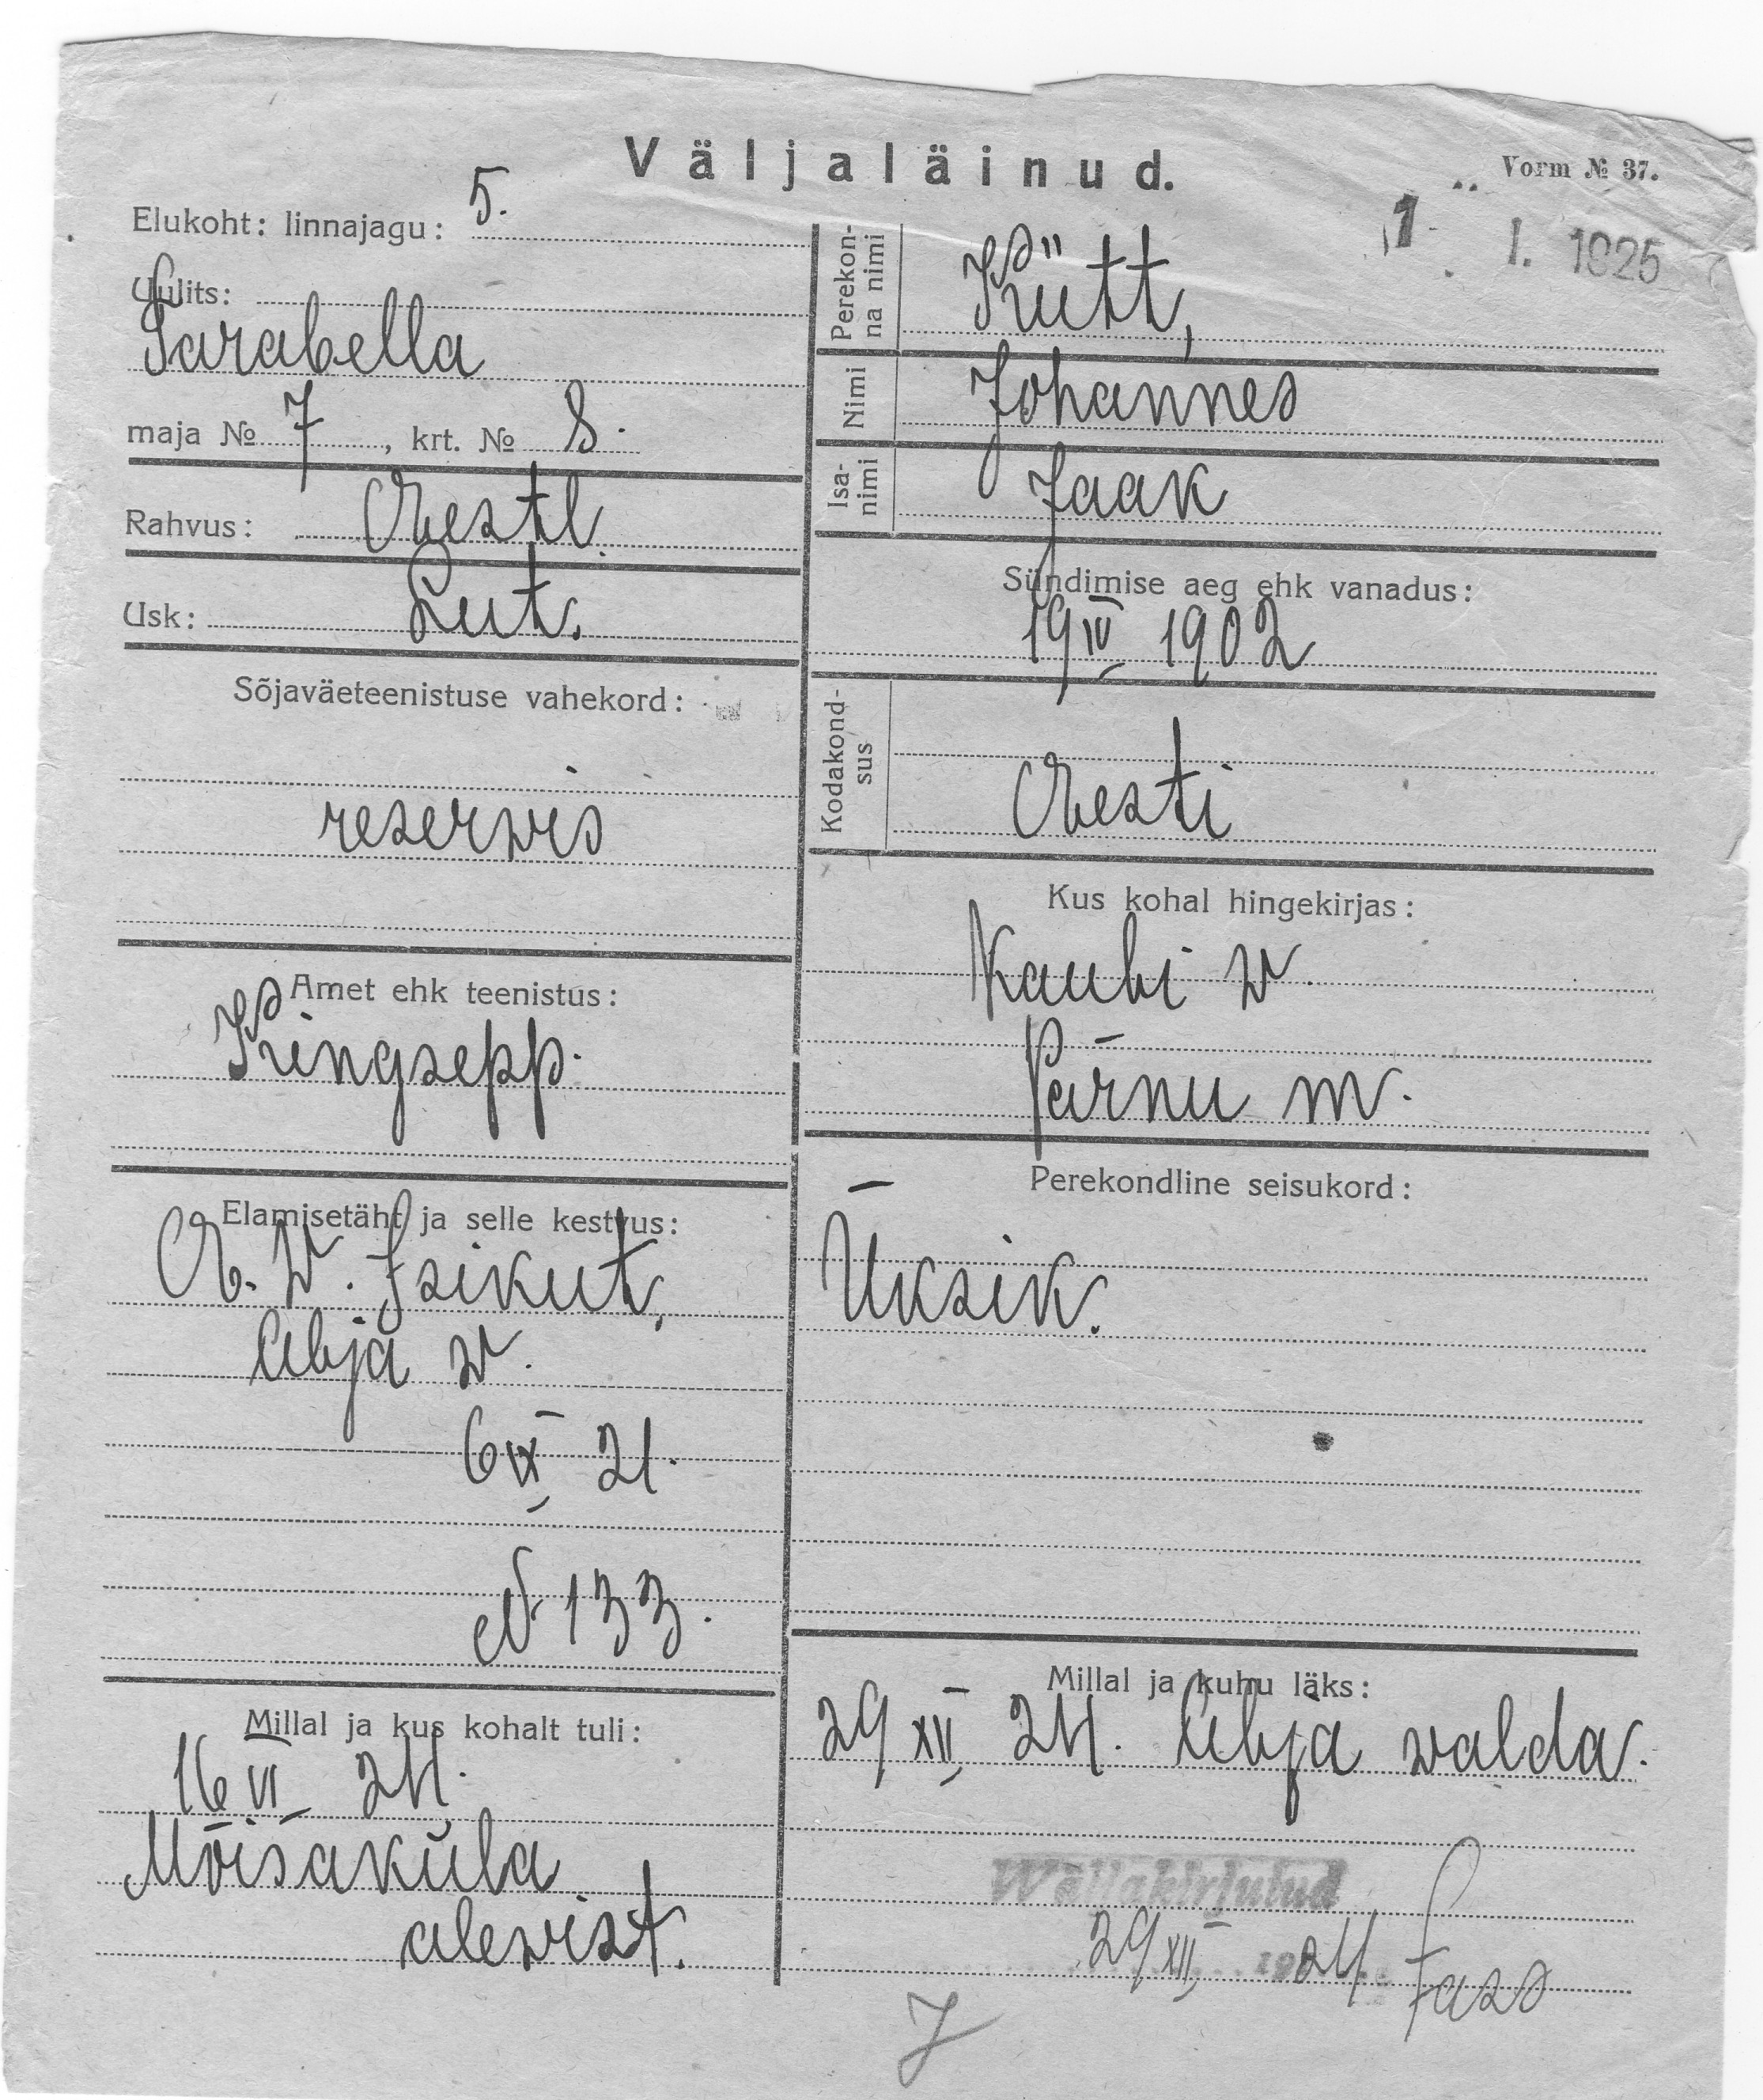 Väljaläinud.
Vorm № 37.
1. I. 1925
Elukoht: linnajagu: 5.
Uulits:
Parabella
maja № 7, krt. № 8.
Rahvus: Eestl.
Usk: Lut.
Sõjaväeteenistuse vahekord:
reserwis
Amet ehk teenistus:
Kingsepp.
Elamisetäht ja selle kestvus:
E. W. Isikut.
Abja w.
6 IX 21.
№ 133.
Millal ja kus kohalt tuli:
16 VI 24.
Mõisaküla
alewist.
Perekonna nimi
Kütt,
Nimi
Johannes
Isanimi
Jaak
Sündimise aeg ehk vanadus:
19 IV 1902
Kodakondsus
Eesti
Kus kohal hingekirjas:
Kaubi w.
Pärnu m.
Perekondline seisukord:
Üksik.
Millal ja kuhu läks:
29 XII 24. Abja walda.
Wäljakirjutud
29 XII 1924.